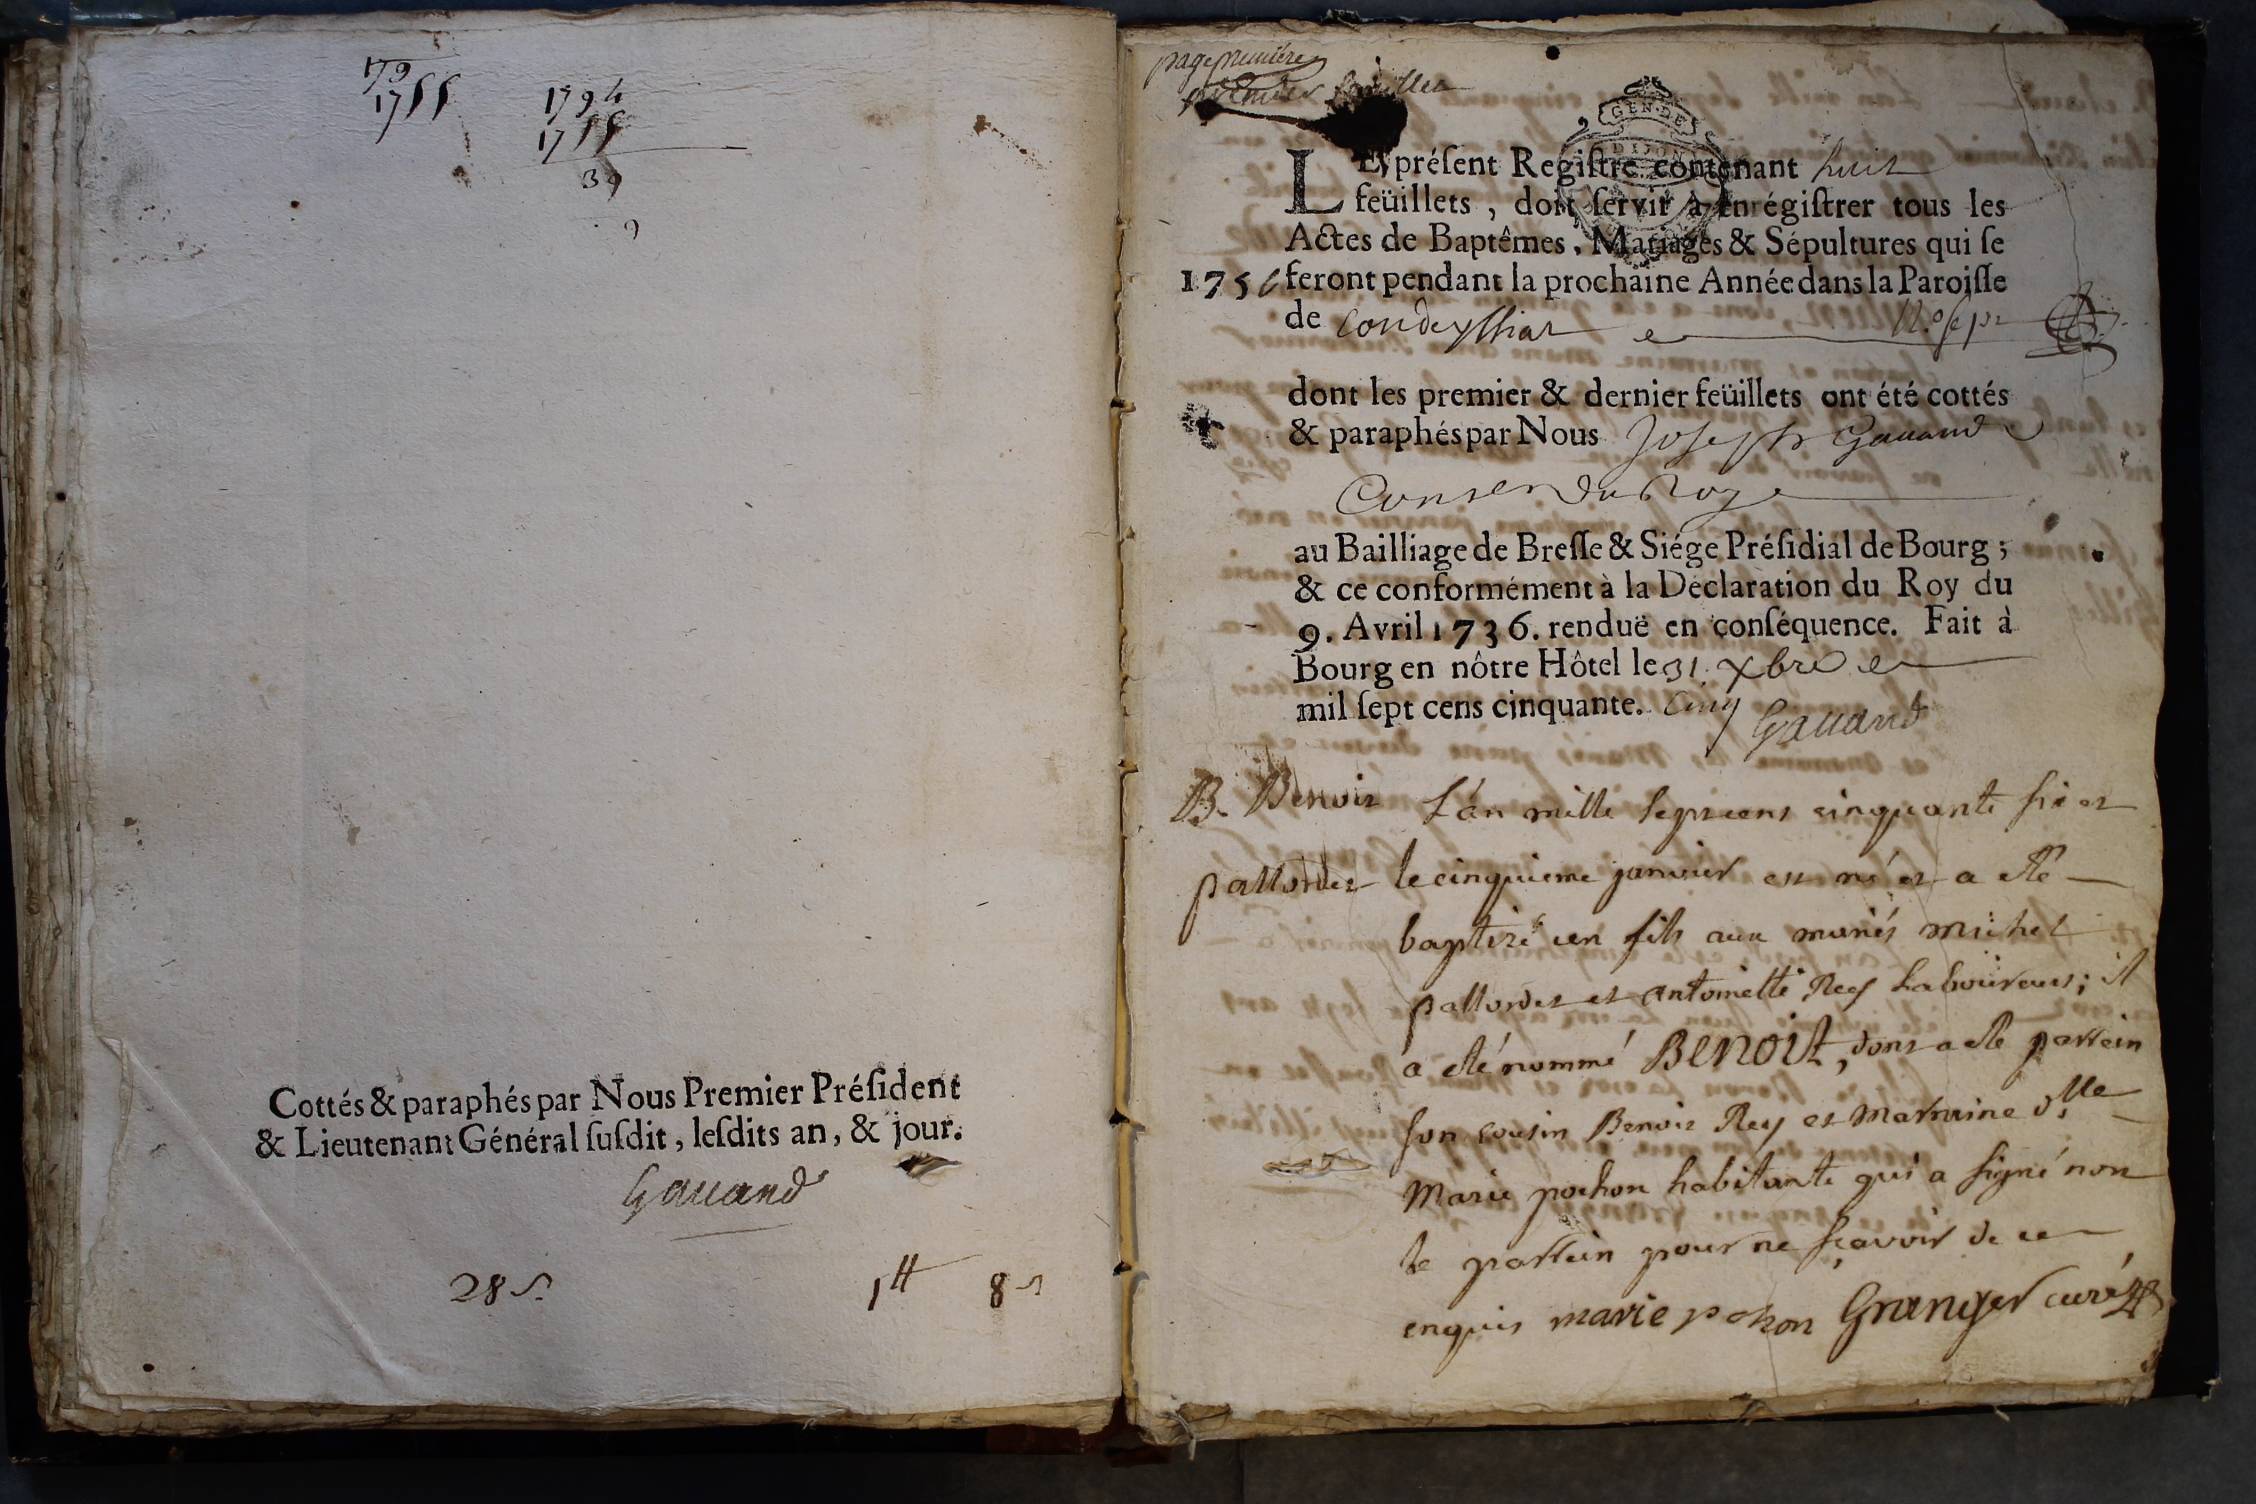 179
1755
1794
1755
39
9
Cottés & paraphés par Nous Premier Préſident
& Lieutenant Général ſuſdit, leſdits an, & jour.
Gauand
28 s.
1 ₶ 8 s
page première
premier feuillet
GEN·DE
DIJON
LE préſent Regiſtre contenant huit
feüillets, doit ſervir à enrégiſtrer tous les
Actes de Baptêmes, Mariages & Sépultures qui ſe
1756 feront pendant la prochaine Année dans la Paroiſſe
de Condeyssiat
dont les premier & dernier feüillets ont été cottés
& paraphés par Nous Joseph Gauand
Conser du Roy
au Bailliage de Breſſe & Siége Préſidial de Bourg;
& ce conformément à la Déclaration du Roy du
9. Avril 1736. renduë en conſéquence. Fait à
Bourg en nôtre Hôtel le 31. xbre
mil ſept cens cinquante. Cinq Gauand
B. Benoit L'an mille sept cens cinquante six et
pallordet le cinquieme janvier est né et a eté
baptizé un fils aux mariés michel
pallordet et antoinette Rey Laboureurs; il
a eté nommé BENOIT, dont a eté parrein
son cousin Benoit Rey et marraine dlle
Marie pochon habitante qui a signé non
le parrein pour ne sçavoir de ce
enquis marie pochon Granger curé